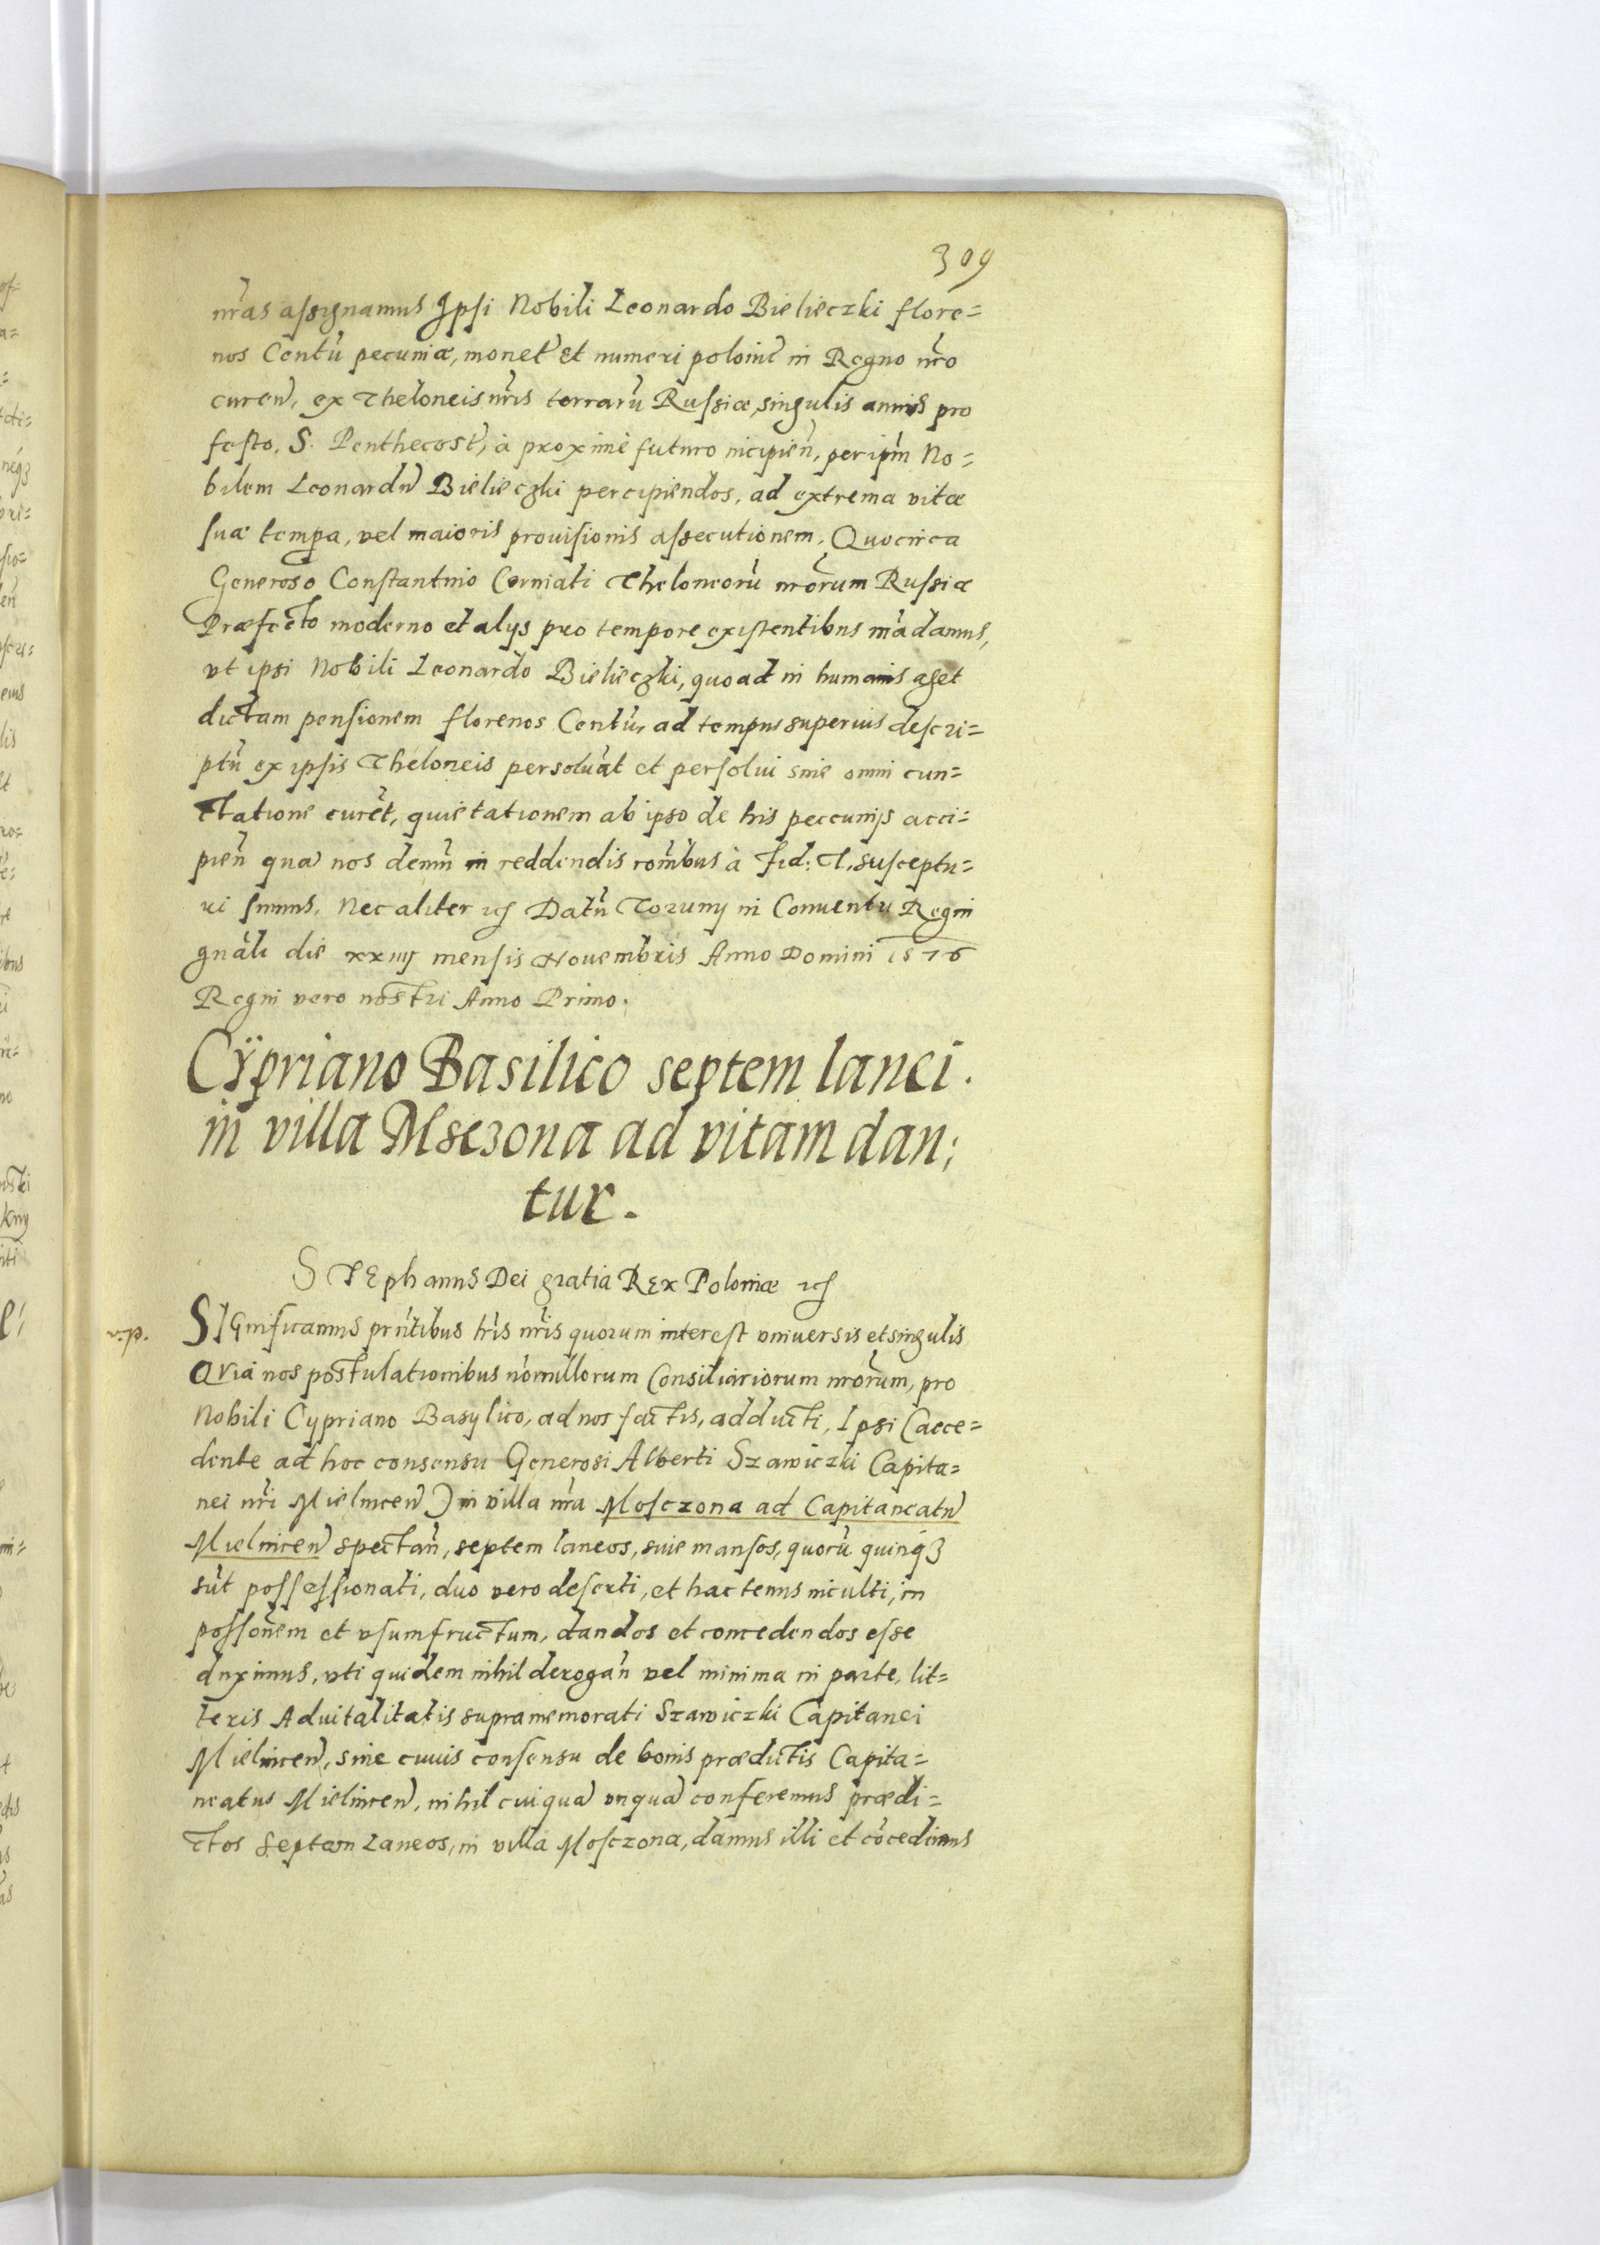 309
nr̃as assignamus Ipsi Nobili Leonardo Bielieczki flore=
nos Centũ pecuniæ, monet̃ et numeri polonic̃ in Regno nr̃o
curen̄, ex Theloneis nr̃is terrarũ Russiæ, singulis annis pro
festo, S. Penthecost̃, à proximè futuro incipien̄, per ip̃m No=
bilem Leonardũ Bielieczki percipiendos, ad extrema vitæ
suæ tempa, vel maioris prouisionis assecutionem. Quocirca
Generoso Constantino Corniati Theloneorũ nr̃orum Russiæ
Præfecto moderno et alys pro tempore existentibus mãdamus,
vt ipsi Nobili Leonardo Bielieczki, quoad in humanis aget
dictam pensionem florenos Centũ, ad tempus superius descri=
ptũ ex ipsis Theloneis persoluat et persolui sine omni cun=
ctatione curet, quietationem ab ipso de his peccunijs acci=
pien̄ qua nos demũ in reddendis rõnibus à Fid: T. susceptu=
ri sumus. Nec aliter ꝛc Datũ Toruny in Conuentu Regni
gnãli die xxiiij mensis Nouembris Anno Domini 1576
Regni vero nostri Anno Primo.
Cÿpriano Basilico septem lanei.
in villa Msczona ad vitam dan;
tur.
STEphanus Dei gratia REx Poloniæ ꝛc
v.p. SIGnificamus prñtibus lr̃is nr̃is quorum interest vniuersis et singulis
Qvia nos postulationibus nõnullorum Consiliariorum nr̃orum, pro
Nobili Cypriano Basylico, ad nos factis, adducti, Ipsi (acce=
dente ad hoc consensu Generosi Alberti Szawiczki Capita=
nei nr̃i Mielnicen̄) in villa nr̃a Mosczona ad Capitaneatũ
Mielnicen̄ spectan̄, septem laneos, siue mansos, quorũ quinqꝫ
sũt possessionati, duo vero deserti, et hactenus inculti, in
possõnem et vsumfructum, dandos et concedendos esse
duximus, vti quidem nihil derogan̄ vel minima in parte, lit=
teris Aduitalitatis supramemorati Szawiczki Capitanei
Mielnicen̄, sine cuius consensu de bonis prædictis Capita=
neatus Mielnicen̄, nihil cuiquã vnquã conferemus prædi=
ctos septem Laneos, in villa Mosczona, damus illi et cõcedimus